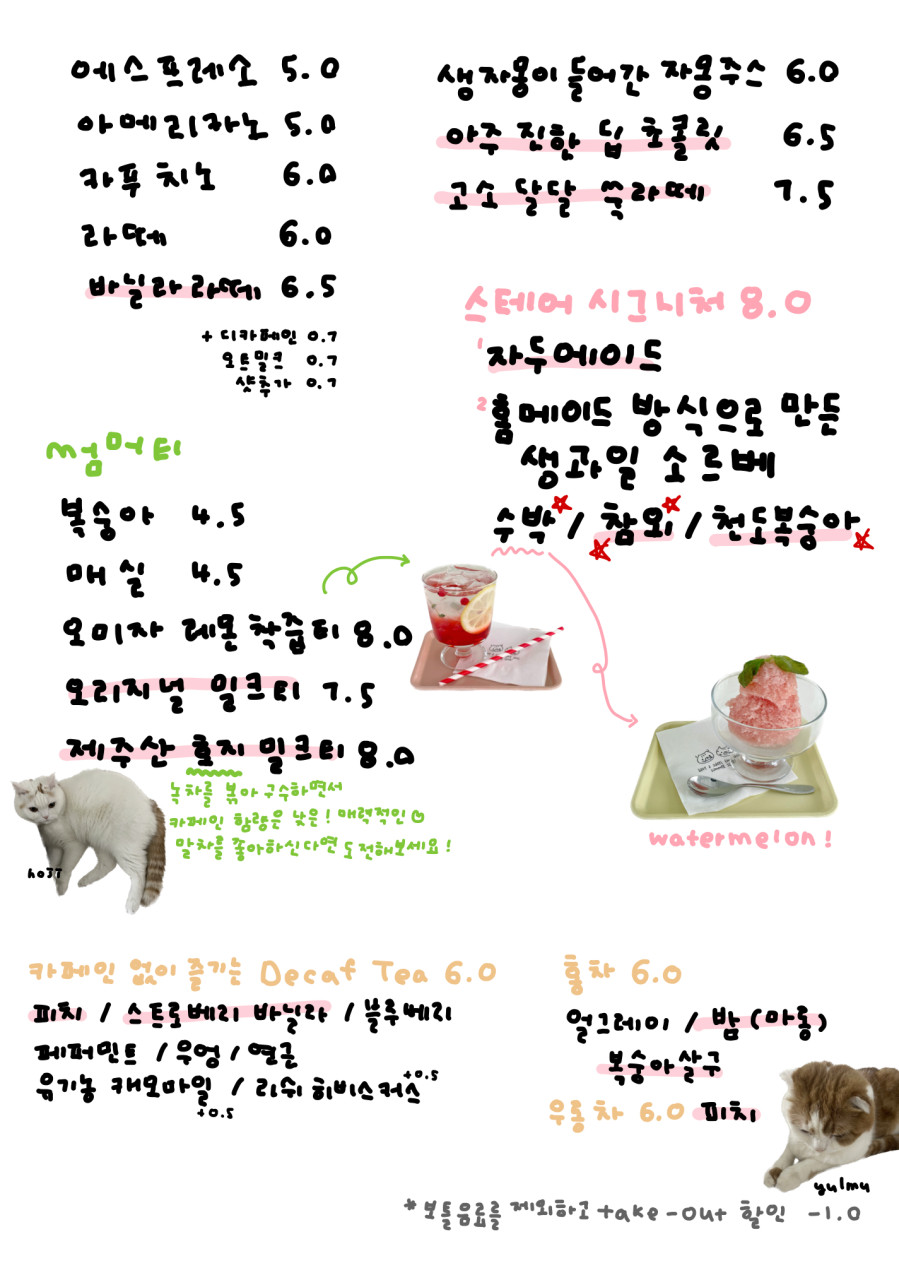 에스프레소 5.0
아메리카노 5.0
카푸치노 6.0
라떼 6.0
바닐라라떼 6.5
+ 디카페인 0.7
오트밀크 0.7
샷추가 0.7
생자몽이 들어간 자몽주스 6.0
아주 진한 딥 초콜릿 6.5
고소 달달 쑥라떼 7.5
스테어 시그니처 8.0
1 자두에이드
2 홈메이드 방식으로 만든
생과일 소르베
수박 / 참외 / 천도복숭아
watermelon!
썸머티
복숭아 4.5
매실 4.5
오미자 레몬 착즙티 8.0
오리지널 밀크티 7.5
제주산 호지 밀크티 8.0
녹차를 볶아 구수하면서
카페인 함량은 낮은! 매력적인
말차를 좋아하신다면 도전해보세요!
hoji
카페인 없이 즐기는 Decaf Tea 6.0
피치 / 스트로베리 바닐라 / 블루베리
페퍼민트 / 우엉 / 연근
유기농 캐모마일 / 러쉬 히비스커스 +0.5
+0.5
홍차 6.0
얼그레이 / 밤(마롱)
복숭아살구
우롱차 6.0 피치
yulmu
*보틀음료를 제외하고 take-out 할인 -1.0